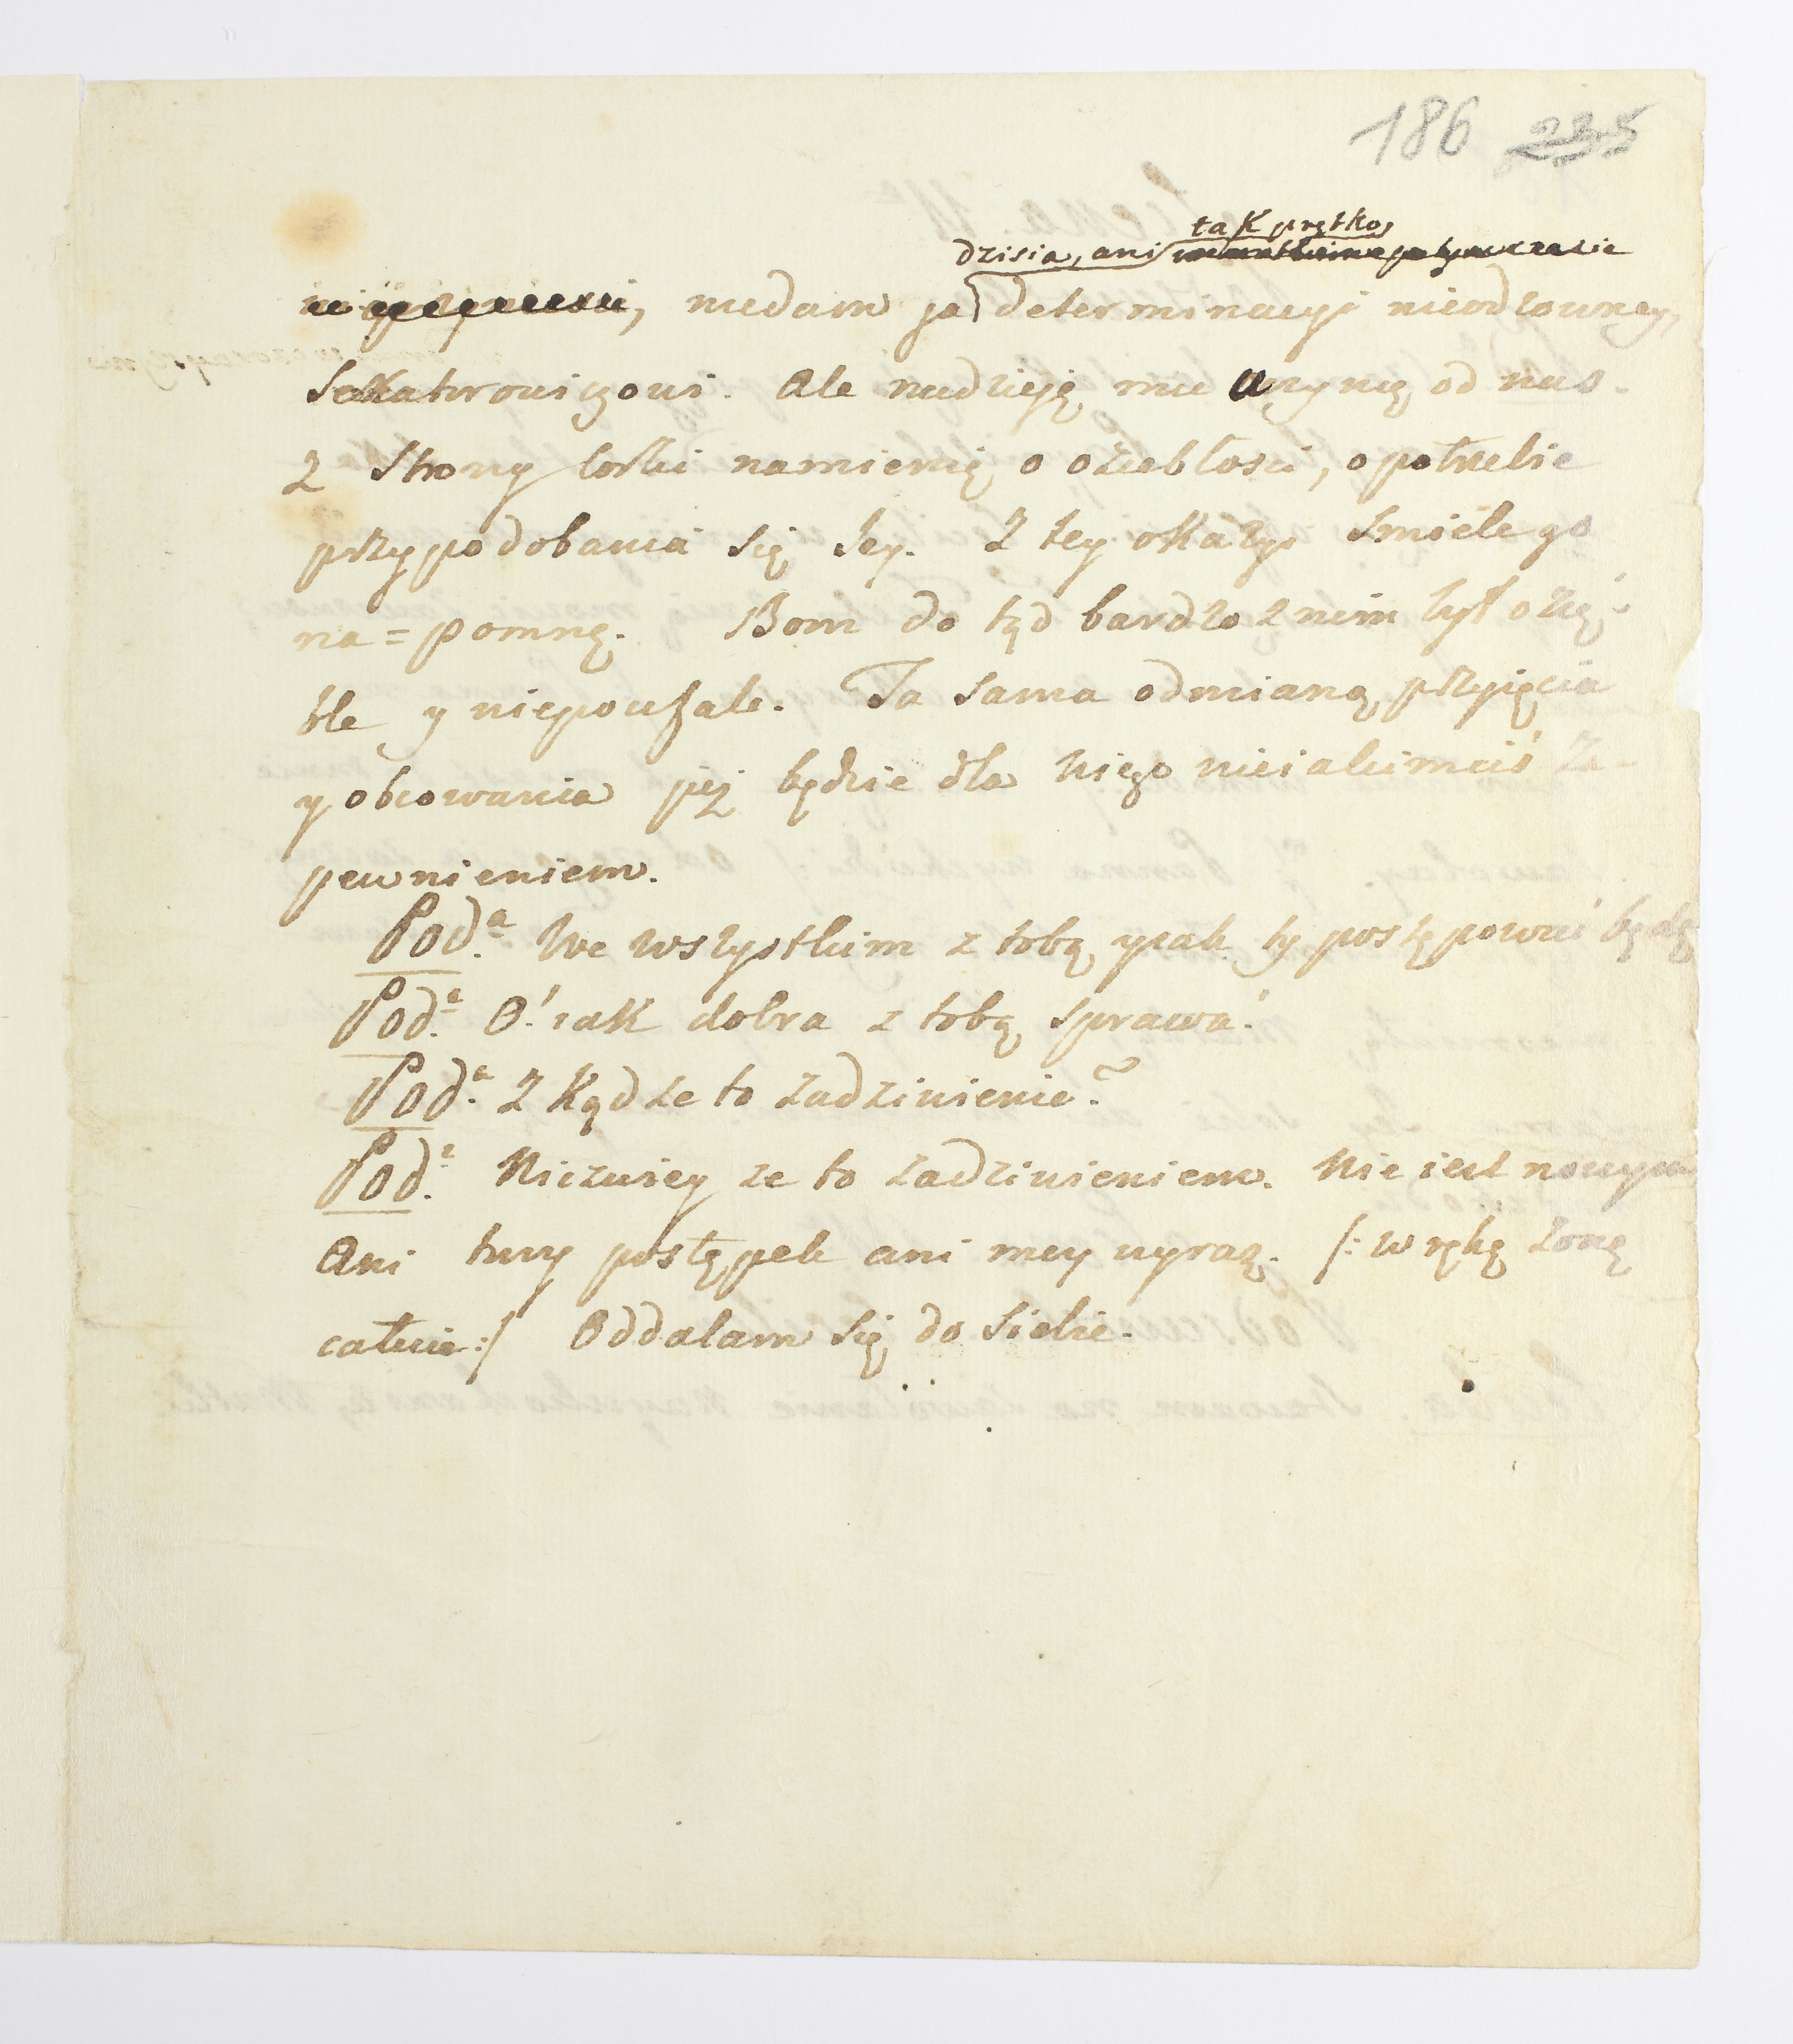 186 235
tak prętko,
dzisia, ani
niedam ja determinacyi nieodzowney,
Ale nadzieję mu uczynię, od nas.
Z Strony corki namienię o oziębłosci, o potrzebie
przypodobania się Jey. Z tey okazyi smiele go
na=pomnę. Bom do tąd bardzo z nim był ozię-
ble y niepoufale. Ta sama odmianą przyięcia
y obcowania iéj będzie dla niego nieiakimciś Za-
pewnieniem.
Pod.ª We wszystkim z tobą y iak ty postępować będę
Pod.ª O! iak dobra z tobą sprawa!
Pod.ª Z kądze to zadziwienie?
Pod.ª Niezwiey ze to zadziwieniem. Nie iest nowym
Ani twoy postępek ani moy wyraz. /: w rękę zonę
całuie :/ Oddalam się do siebie.